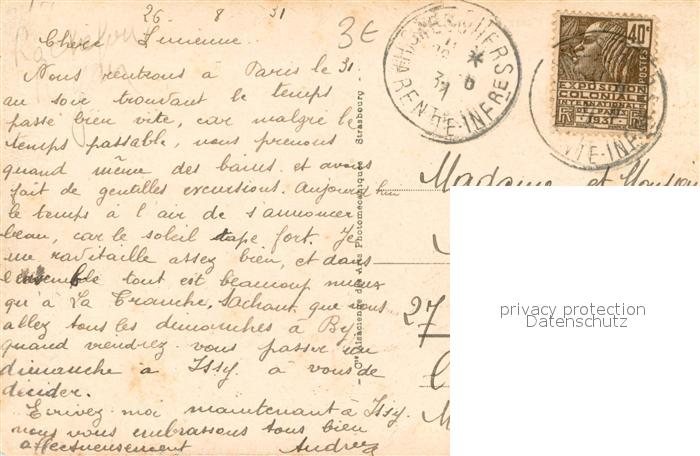 26 - 8 31
3€
Chère Lucienne
Nous rentrons à Paris le 31
au soir trouvant le temps
passé bien vite, car malgré le
temps passable, nous prenons
quand même des bains et avons
fait de gentilles excursions. Aujourd'hui
le temps à l'air de s'annoncer
beau, car le soleil tape fort. Je
me ravitaille assez bien, et dans
l'ensemble tout est beaucoup mieux
qu'à La Tranche. Sachant que vous
allez tous les dimanches à By,
quand viendrez vous passer un
dimanche à Issy. à vous de
décider.
Ecrivez moi maintenant à Issy.
nous vous embrassons tous bien
affectueusement Andrée
Cie Alsacienne des Arts Photomécaniques Strasbourg
RENTE-INFRE
40c
POSTES
EXPOSITION
COLONIALE
INTERNATIONALE
PARIS
1931
TE-INF
Madame et
27
privacy protection
Datenschutz